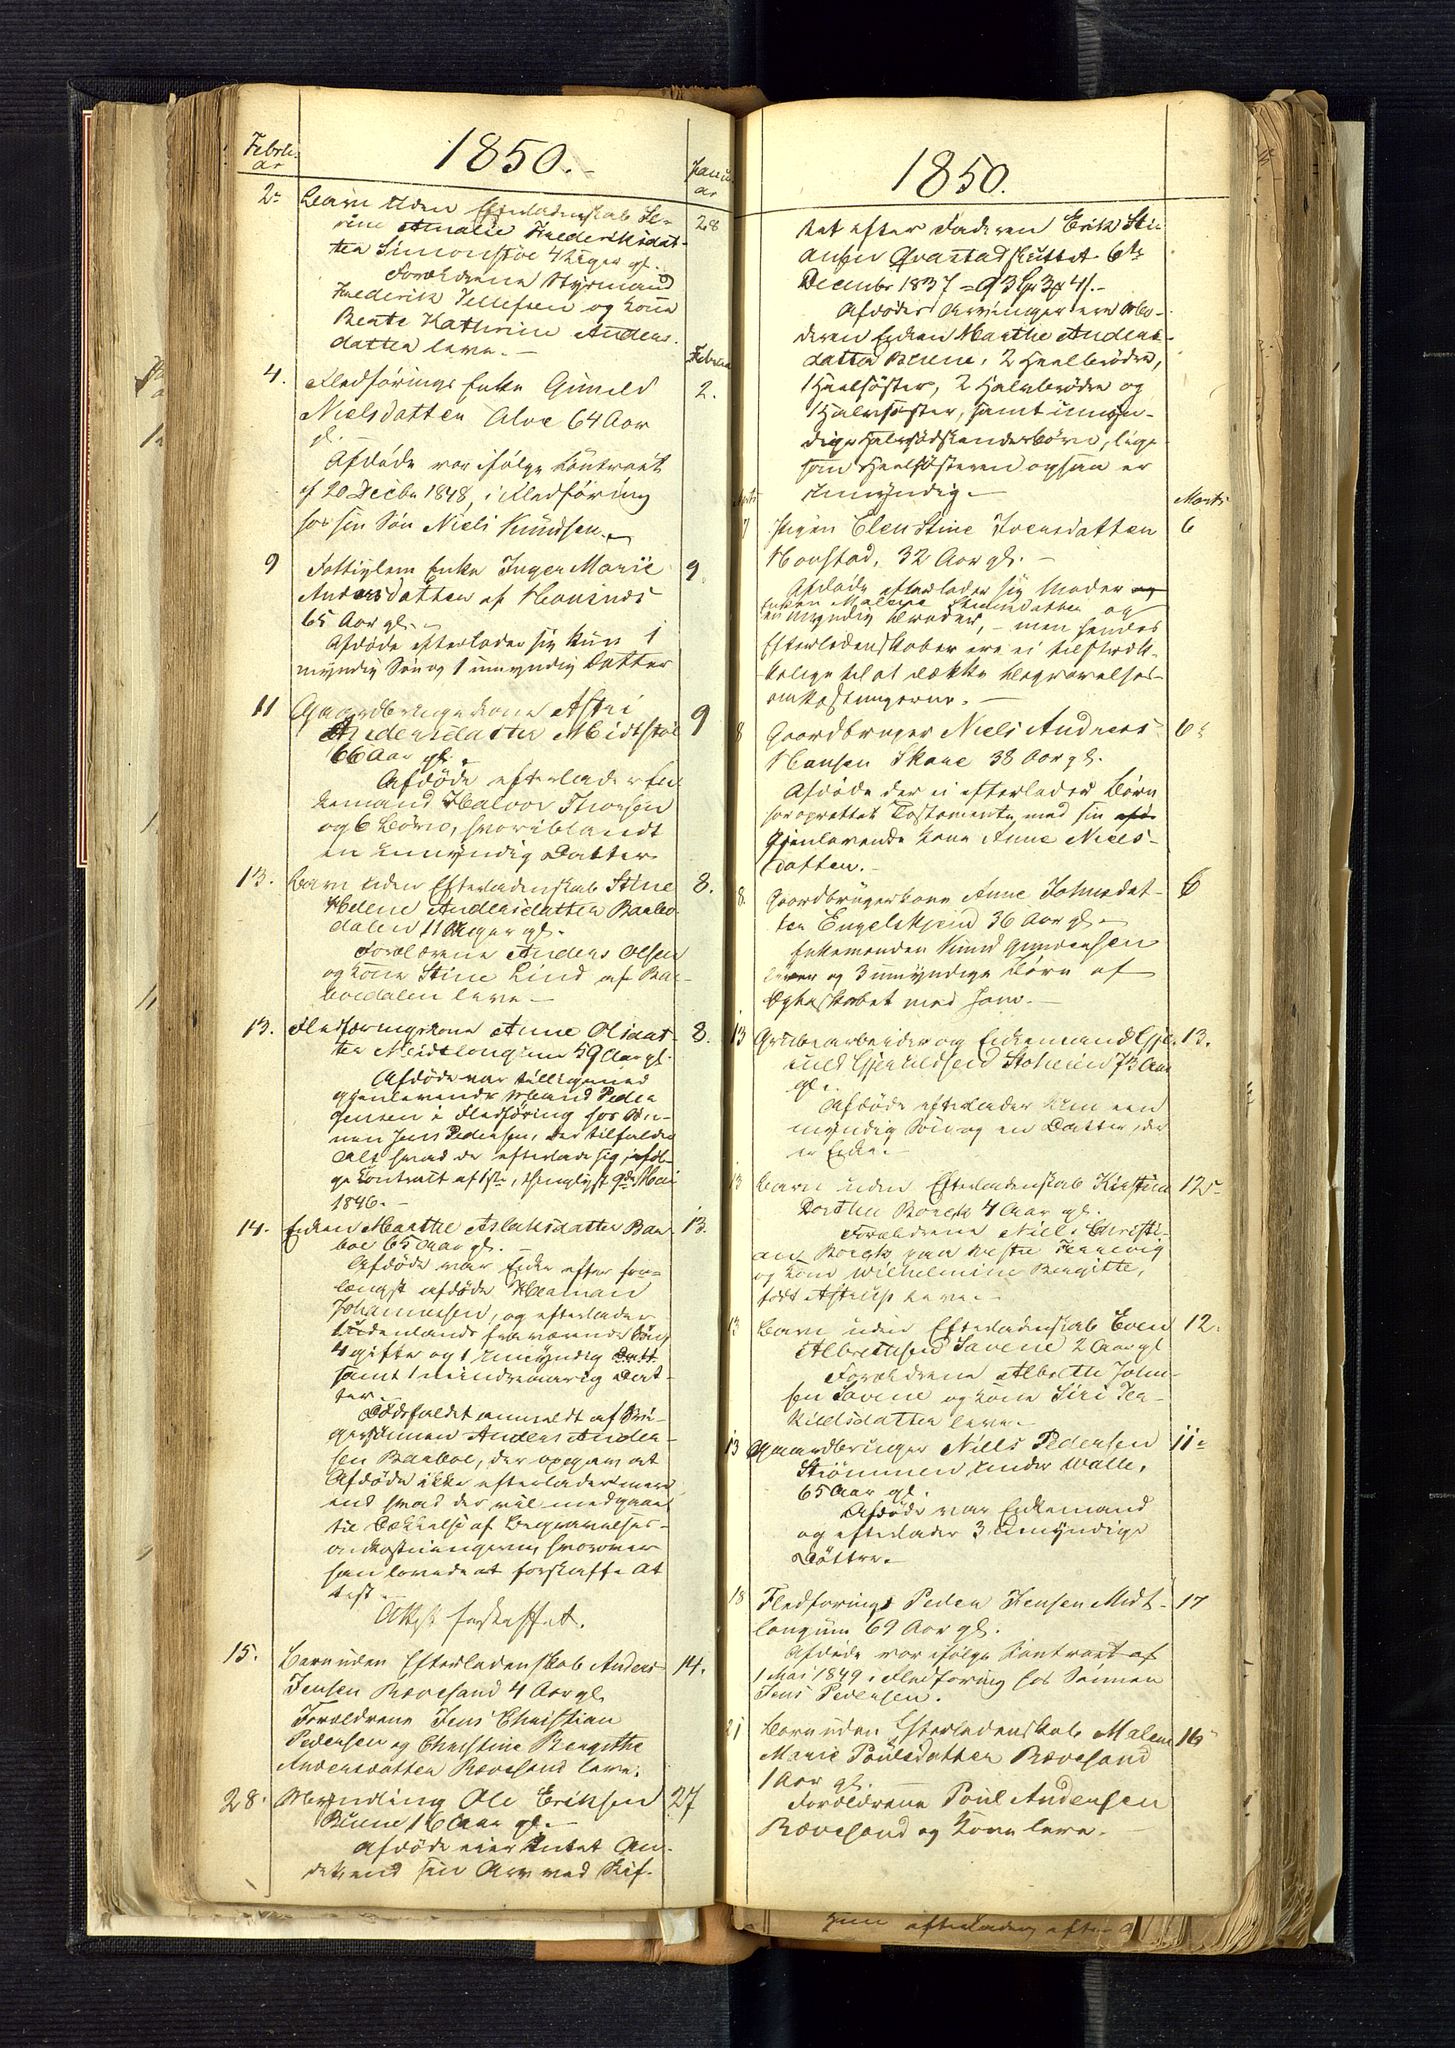 Febru-
ar
1850.
Janu-
ar
2- Barn uden Efterladenskab Se- 28
rine Amalie Frederiksdat-
ter Simonstøe 4 Uger gl.
Forældrene Styrmand
Frederik Tellefsen og Kone
Beate Kathrine Anders-
datter leve.-
Februar
4. Fledførings Enke Gunild 2.
Nielsdatter Alve 64 Aar
gl.
Afdøde var ifølge Contract
af 20 Decbr 1848 i Fledføring
hos sin Søn Niels Knudsen.
9 Fattiglem Enke Inger Marie 9.
Andersdatter af
65 Aar gl.
Afdøde efterlader sig kun 1
myndig Søn og 1 umyndig Datter
11 Gaardbrugerkone Astri 9
Andersdatter Midtstøl
66 Aar gl.
Afdøde efterlader En-
kemand Halvor Thorsen
og 6 Børn, hvoriblandt
en umyndig Datter
13. Barn uden Efterladenskab Stine 8.
Helene Andersdatter Barbo-
dalen 11 Uger gl.
Forældrene Anders Olsen
og Kone Stine Lind af Bar-
boedalen leve-
13. Fledføringskone Anne Olsdat- 8.
ter Midtlongum 59 Aar gl.
Afdøde var tilligemed
gjenlevende Mand Peder
Jensen i Fledføring hos Søn-
nen Jens Pedersen, der tilfalder
Alt hvad de efterlade sig, iføl-
ge Contract af 1ste, thinglyst 9de Mai
1846.-
14. Enken Marthe Aslaksdatter Bar- 13.
boe 65 Aar gl.
Afdøde var Enke efter for-
længst afdøde Herman
Johannesen, og efterlader
1 udenlands fraværende Søn,
4 gifte og 1 umyndig Datt
samt 1 mindreaarig Dat-
ter.
Dødsfaldet anmeldt af Svi-
gersønnen Anders Ander-
sen Barboe, der opgav at
Afdøde ikke efterlader mere
end hvad der vil medgaae
til Dækkelse af Begravelses-
omkostningerne, hvorom
han lovede at forskaffe At-
test.-
Attest forskaffet.
15. Barn uden Efterladenskab Anders 14.
Jensen Rævesand 4 Aar gl.
Forældrene Jens Christian
Pedersen og Christine Bergithe
Andersdatter Rævesand leve.
28. Myndling Ole Eriksen 27
Biune 16 Aar gl.-
Afdøde eier Intet An-
det end sin Arv ved Skif-
1850.
tet efter Faderen Erik Sti-
ansen Qvastad sluttet 6te
December 1837
Afdødes Arvinger ere Mo-
deren Enken Marthe Anders-
datter Biune, 2 Heelbrødre,
1 Heelsøster, 2 Halvbrødre og
1 Halvsøster, samt umyn-
dige Halvsødskendebørn, lige-
som Heelsøsteren ogsaa er
umyndig.-
Marts Marts
7 Pigen Elen Stine Iversdatter 6
Harstad, 32 Aar gl.-
Afdøde efterlader sig Moder og
Enken Malene
umyndig Broder, - men hendes
Efterladenskaber ere ei tilstræk-
kelige til at dække Begravelses-
omkostningerne.-
8 Gaardbruger Niels Andreas 6-
Hansen Skare 38 Aar gl.
Afdøde der ei efterlader Børn
har oprettet Testamente med sin
Gjenlevende Kone Anne Niels-
datter.-
8. Gaardbrugerkone Anne Johnsdat- 6
ter Engelskjøn 36 Aar gl.
Enkemanden Knud Gundersen
lever og 3 umyndige Børn af
Egteskabet med ham.-
13 Grubearbeider og Enkemand Gje- 13.
ruld Gjeruldsen Stoheien 73 Aar
gl.
Afdøde efterlader kun een
myndig Søn og en Datter, der
er Enke.-
13 Barn uden Efterladenskab Kirstine 12-
Dorthe Borch 4 Aar gl.
Forældrene Niels Christi-
an Borch paa Vestre
og Kone Wilhelmine Bergitte,
født Astrup leve.-
13 Barn uden Efterladenskab Even 12.
Albrethsen Savene 2 Aar gl
Forældrene Albreth John-
sen Savene og Kone Siri Ter-
kildsdatter leve.-
13 Gaardbruger Niels Pedersen 11-
Strømmen under Walle,
65 Aar gl.
Afdøde var Enkemand
og efterlader 3 umyndige
Døttre.-
18 Fledførings Peder Jensen Midt- 17
longum 69 Aar gl.
Afdøde var ifølge Contract af
1 Mai 1849 i Fledføring hos Sønnen
Jens Pedersen.
21 Barn uden Efterladenskab Malene 16-
Marie Poulsdatter Rævesand
1 Aar gl.
Forældrene Poul Andersen
Rævesand og Kone leve.-
Hun efterlader efter-